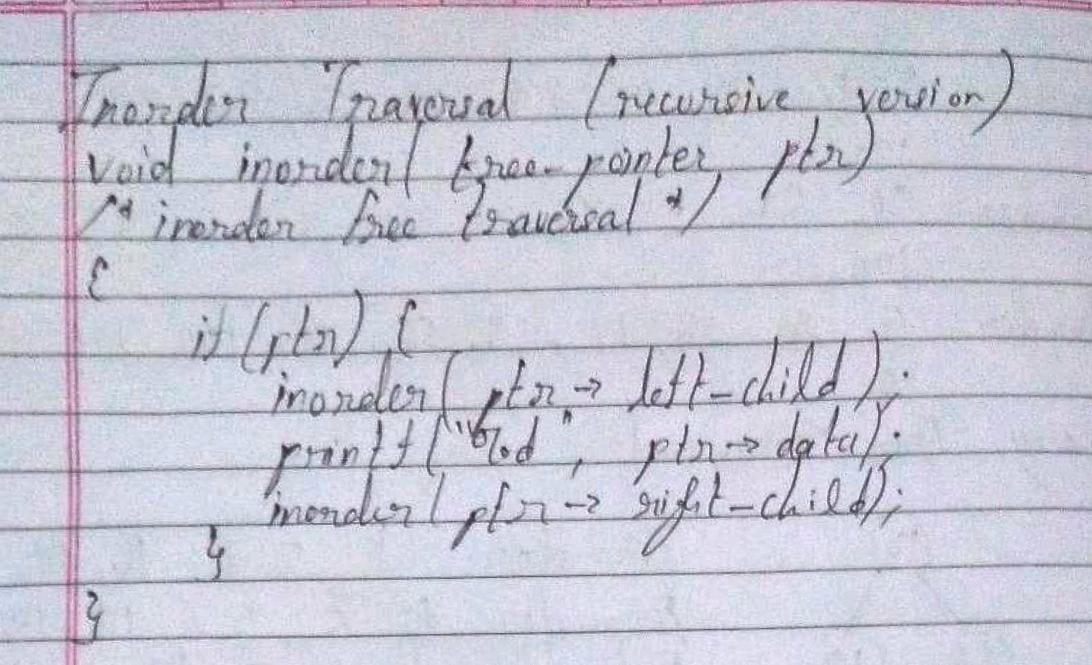 Inorder Traversal (recursive version)
void inorder( tree-pointer ptr)
/* inorder tree traversal */
{
if (ptr) {
inorder( ptr → left-child);
printf("%d", ptr → data);
inorder( ptr → right-child);
}
}